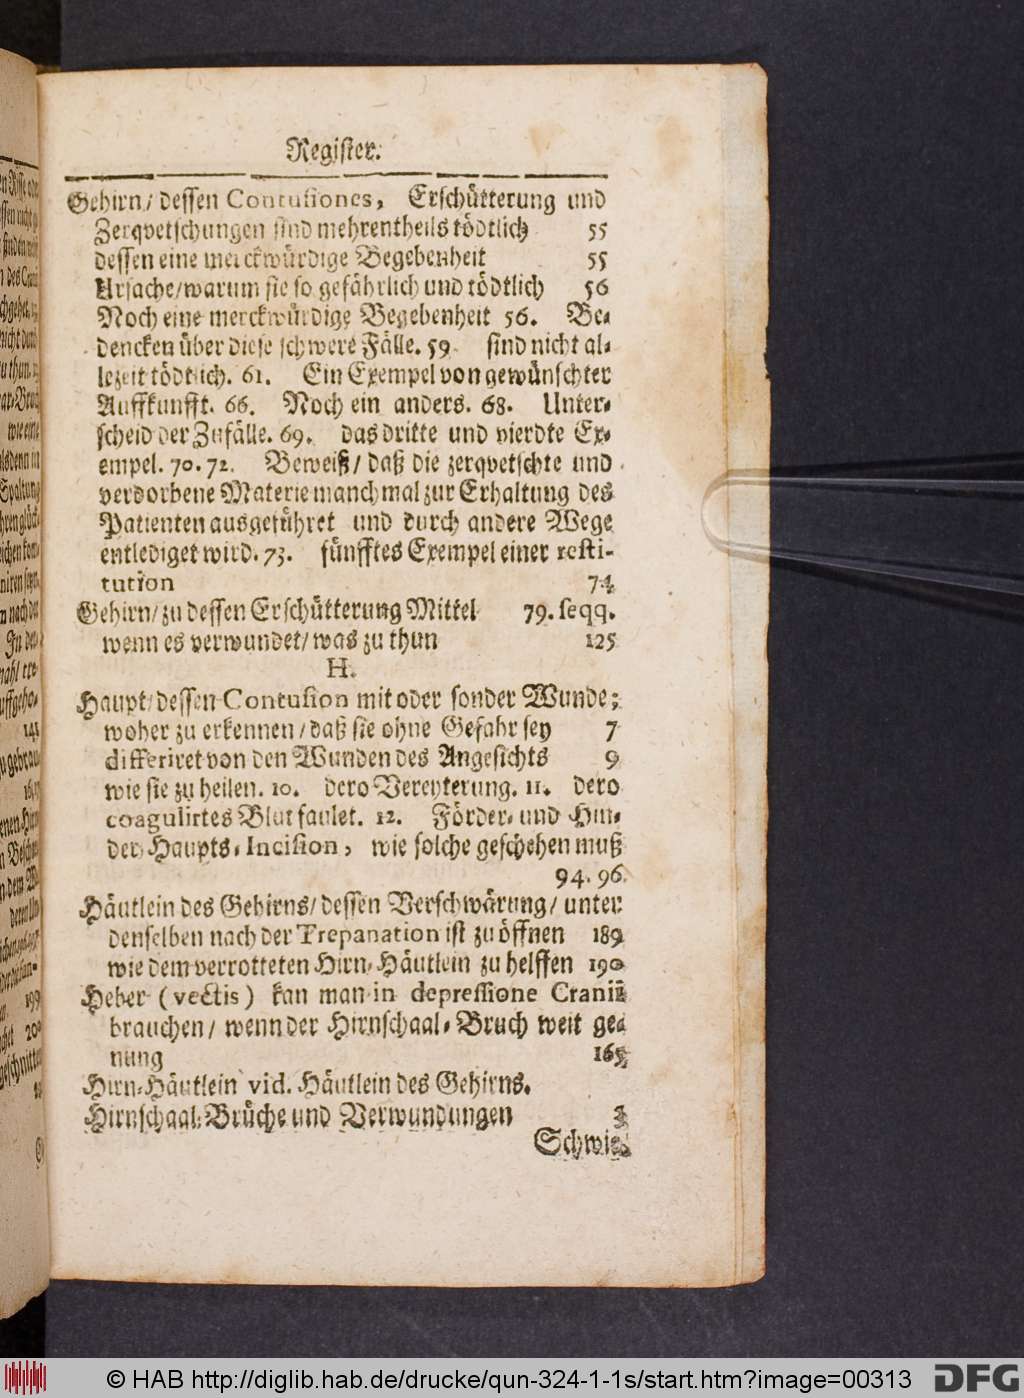 Register.
Gehirn/ dessen Contusiones, Erschütterung und
Zerqvetschungen sind mehrentheils tödtlich 55
dessen eine merckwürdige Begebenheit 55
Ursache/warum sie so gefährlich und tödtlich 56
Noch eine merckwürdige Begebenheit 56. Be-
dencken über diese schwere Fälle. 59 sind nicht al-
lezeit tödtlich. 61. Ein Exempel von gewünschter
Auffkunfft. 66. Noch ein anders. 68. Unter-
scheid der Zufälle. 69. das dritte und vierdte Ex-
empel. 70. 72. Beweiß/ daß die zerqvetschte und
verdorbene Materie manchmal zur Erhaltung des
Patienten ausgeführet und durch andere Wege
entlediget wird. 73. fünfftes Exempel einer resti-
tution 74
Gehirn/ zu dessen Erschütterung Mittel 79. seqq.
wenn es verwundet/ was zu thun 125
H.
Haupt/ dessen Contusion mit oder sonder Wunde;
woher zu erkennen/ daß sie ohne Gefahr sey 7
differiret von den Wunden des Angesichts 9
wie sie zu heilen. 10. dero Vereyterung. 11. dero
coagulirtes Blut faulet. 12. Förder- und Hin-
der-Haupts-Incision, wie solche geschehen muß
94. 96.
Häutlein des Gehirns/ dessen Verschwärung/ unter
denselben nach der Trepanation ist zu öffnen 189
wie dem verrotteten Hirn-Häutlein zu helffen 190
Heber (vectis) kan man in depressione Cranii
brauchen/ wenn der Hirnschaal-Bruch weit ge-
nung 165
Hirn-Häutlein vid. Häutlein des Gehirns.
Hirnschaal-Brüche und Verwundungen 3
Schwie-
© HAB http://diglib.hab.de/drucke/qun-324-1-1s/start.htm?image=00313
DFG